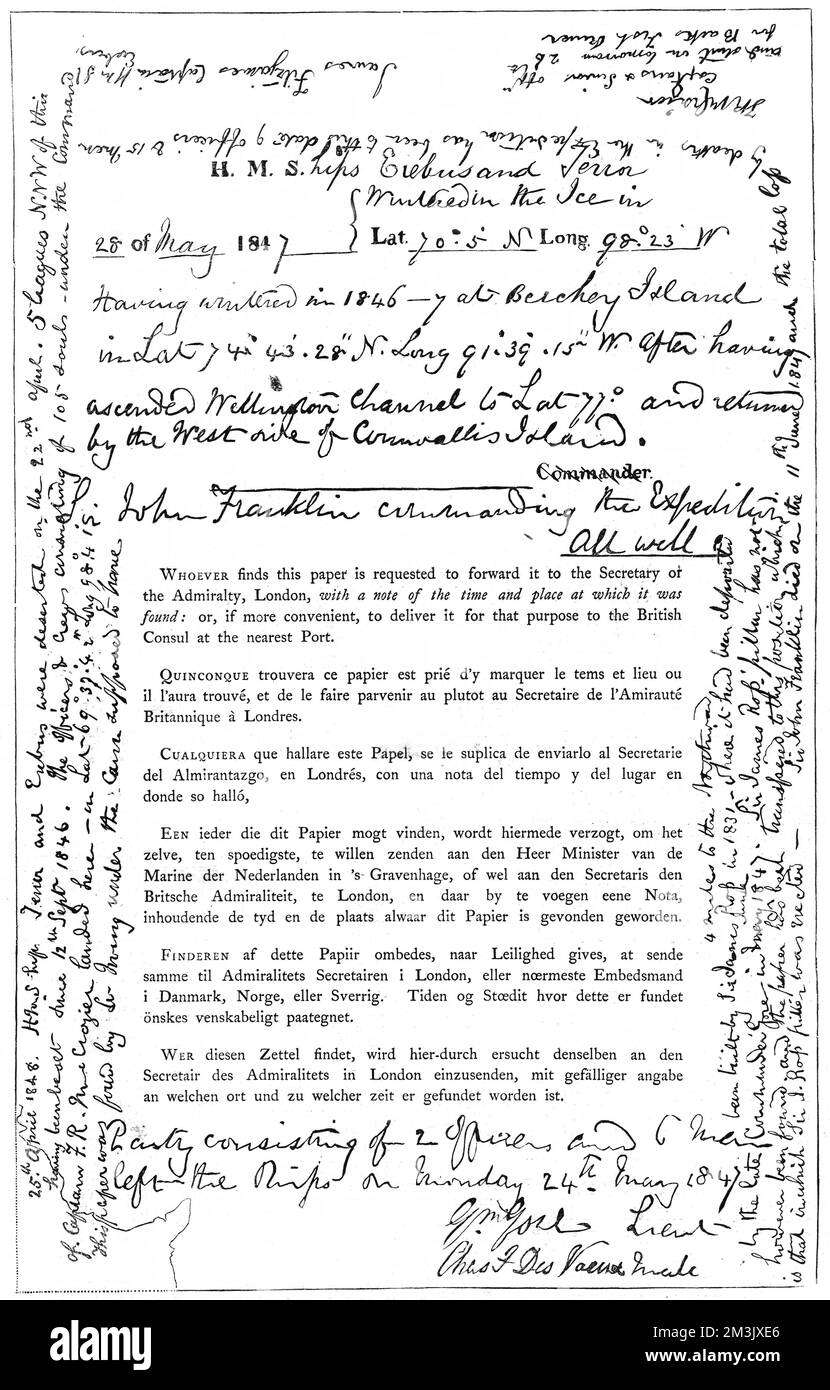 H. M. Ships Erebus and Terror
Wintered in the Ice in
28 of May 1847 Lat. 70° 5' N Long. 98° 23' W
Having wintered in 1846–7 at Beechey Island
in Lat 74° 43' 28" N. Long 91° 39' 15" W. After having
ascended Wellington Channel to Lat 77° and returned
by the West side of Cornwallis Island.
Commander.
John Franklin commanding the Expedition
All well
WHOEVER finds this paper is requested to forward it to the Secretary of
the Admiralty, London, with a note of the time and place at which it was
found: or, if more convenient, to deliver it for that purpose to the British
Consul at the nearest Port.
QUINCONQUE trouvera ce papier est prié d'y marquer le tems et lieu ou
il l'aura trouvé, et de le faire parvenir au plutot au Secretaire de l'Amirauté
Britannique à Londres.
CUALQUIERA que hallare este Papel, se le suplica de enviarlo al Secretarie
del Almirantazgo, en Londrés, con una nota del tiempo y del lugar en
donde so halló,
EEN ieder die dit Papier mogt vinden, wordt hiermede verzogt, om het
zelve, ten spoedigste, te willen zenden aan den Heer Minister van de
Marine der Nederlanden in 's Gravenhage, of wel aan den Secretaris den
Britsche Admiraliteit, te London, en daar by te voegen eene Nota,
inhoudende de tyd en de plaats alwaar dit Papier is gevonden geworden.
FINDEREN af dette Papiir ombedes, naar Leilighed gives, at sende
samme til Admiralitets Secretairen i London, eller nœrmeste Embedsmand
i Danmark, Norge, eller Sverrig. Tiden og Stœdit hvor dette er fundet
önskes venskabeligt paategnet.
WER diesen Zettel findet, wird hier-durch ersucht denselben an den
Secretair des Admiralitets in London einzusenden, mit gefälliger angabe
an welchen ort und zu welcher zeit er gefundet worden ist.
Party consisting of 2 Officers and 6 Men
left the Ships on Monday 24th May 1847
Gm Gore Lieut
Chas F Des Voeux Mate
25th April 1848. H M Ships Terror and Erebus were deserted on the 22nd April. 5 leagues N.N.W of this
having been beset since 12th Sept 1846. The Officers & Crews consisting of 105 souls under the Command
of Captain F. R. M. Crozier landed here – in Lat 69° 37' 42" Long 98° 41'
This paper was found by Lt Irving under the Cairn supposed to have
been built by Sir James Ross in 1831 where it had been deposited
4 miles to the Northward
by the late Commander Gore in June May 1847. Sir James Ross' pillar has not
however been found and the paper has been transferred to this position which
is that in which Sir J. Ross' pillar was erected – Sir John Franklin died on the 11th June 1847 and the total loss
by deaths in the Expedition has been to this date 9 officers & 15 men
James Fitzjames Captain HMS Erebus
F R M Crozier
Captain & Senior Offr
and start on tomorrow 26th
for Backs Fish River
alamy
Image ID: 2M3JXE6
www.alamy.com